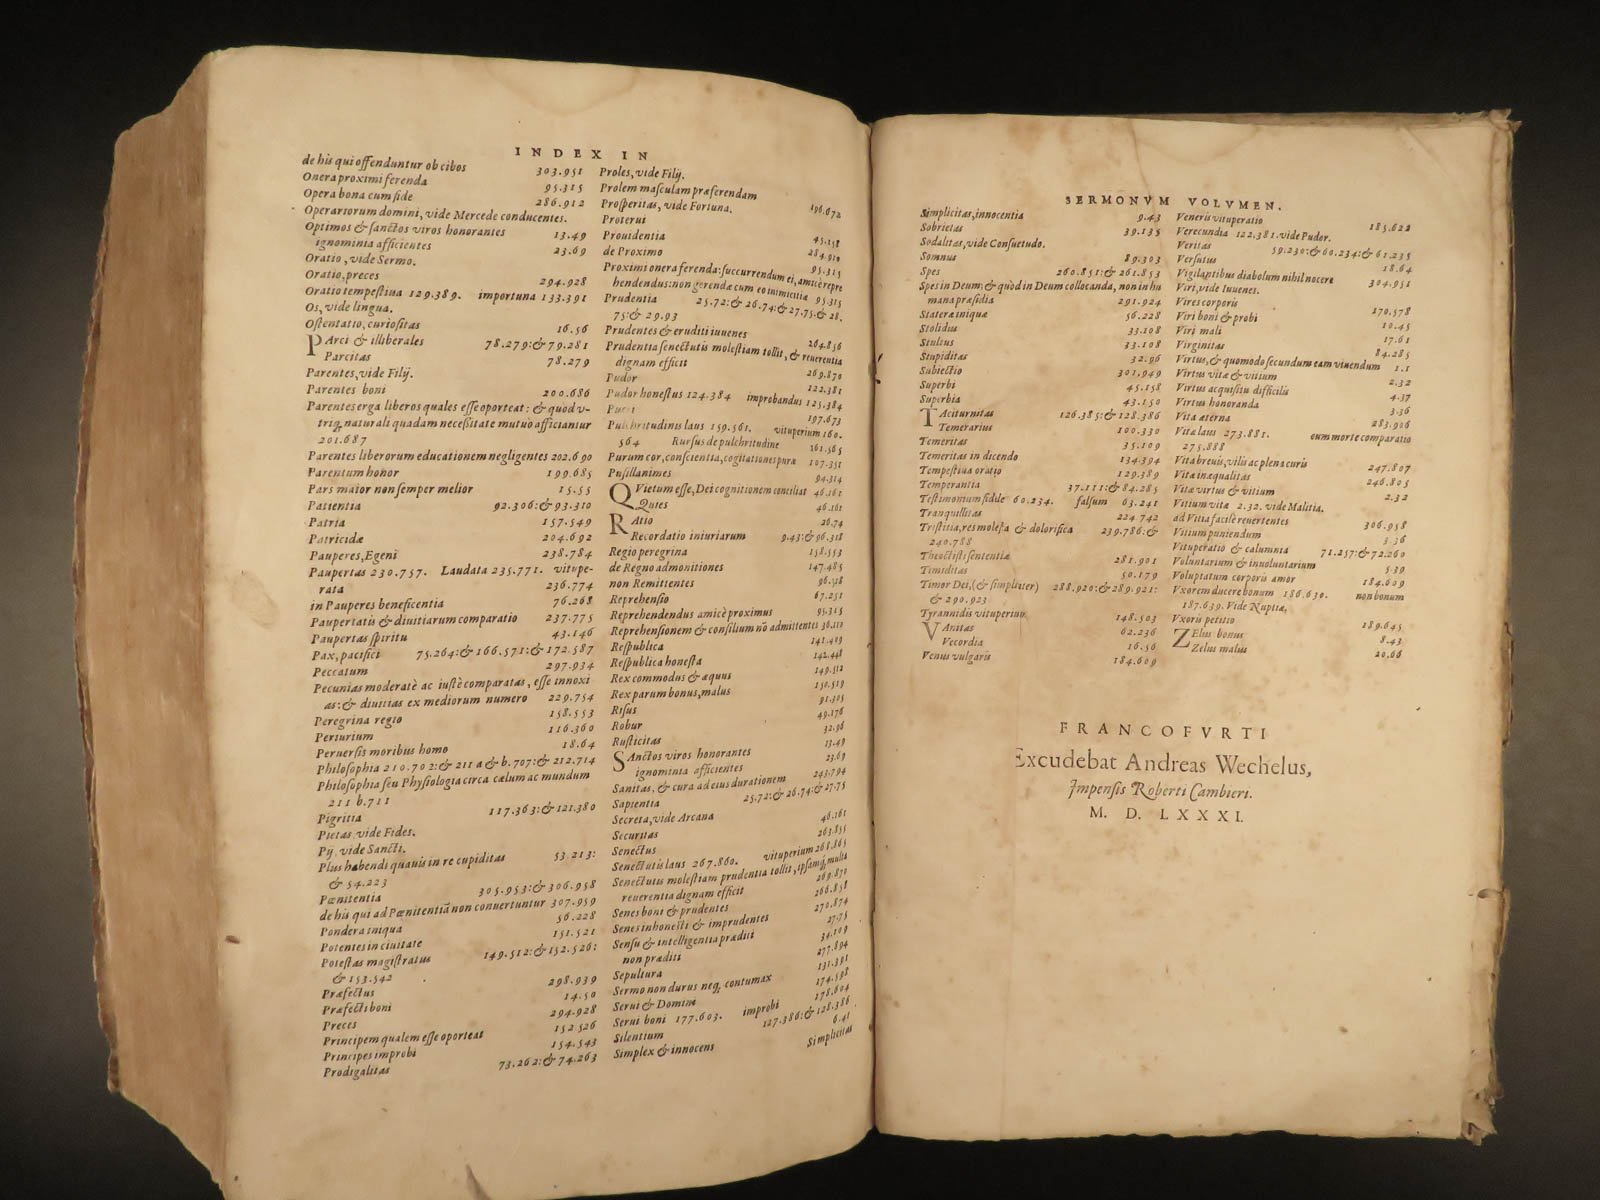 INDEX IN
de his qui offenduntur ob cibos 303.951
Onera proximi ferenda 95.315
Opera bona cum fide 286.912
Operariorum domini, vide Mercede conducentes.
Optimos & sanctos viros honorantes 13.49
ignominia afficientes 23.69
Oratio, vide Sermo.
Oratio, preces 294.928
Oratio tempestiua 129.389. importuna 133.391
Os, vide lingua.
Ostentatio, curiositas 16.56
PArci & illiberales 78.279:& 79.281
Parcitas 78.279
Parentes, vide Filij.
Parentes boni 200.686
Parentes erga liberos quales esse oporteat: & quòd v-
triq; naturali quadam necessitate mutuò afficiantur
201.687
Parentes liberorum educationem negligentes 202.690
Parentum honor 199.685
Pars maior non semper melior 15.55
Patientia 92.306:& 93.310
Patria 157.549
Patricidæ 204.692
Pauperes, Egeni 238.784
Paupertas 230.757. Laudata 235.771. vitupe-
rata 236.774
in Pauperes beneficentia 76.268
Paupertatis & diuitiarum comparatio 237.775
Paupertas spiritu 43.146
Pax, pacifici 75.264:& 166.571:& 172.587
Peccatum 297.934
Pecunias moderatè ac iustè comparatas, esse innoxi
as: & diuitias ex mediorum numero 229.754
Peregrina regio 158.553
Periurium 116.360
Peruersis moribus homo 18.64
Philosophia 210.702:& 211 a & b.707:& 212.714
Philosophia seu Physiologia circa cælum ac mundum
211 b.711
Pigritia 117.363:& 121.380
Pietas, vide Fides.
Pij, vide Sancti.
Plus habendi quauis in re cupiditas 53.213:
& 54.223
Pœnitentia 305.953:& 306.958
de his qui ad Pœnitentiã non conuertuntur 307.959
Pondera iniqua 56.228
Potentes in ciuitate 151.521
Potestas magistratus 149.512:& 152.526:
& 153.542
Præfectus 298.939
Præfecti boni 14.50
Preces 294.928
Principem qualem esse oporteat 152.526
Principes improbi 154.543
Prodigalitas 73.262:& 74.263
Proles, vide Filij.
Prolem masculam præferendam 196.672
Prosperitas, vide Fortuna.
Proterui 45.158
Prouidentia 284.910
de Proximo 95.315
Proximi onera ferenda: succurrendum ei, amicè repre
hendendus: non gerendæ cum eo inimicitiæ 95.315
Prudentia 25.72:& 26.74:& 27.75:& 28.
75:& 29.93
Prudentes & eruditi iuuenes 264.856
Prudentia senectutis molestiam tollit, & reuerentia
dignam efficit 269.870
Pudor 122.381
Pudor honestus 124.384 improbandus 125.384
Pueri 197.673
Pulchritudinis laus 159.561. vituperium 160.
564 Rursus de pulchritudine 161.565
Purum cor, conscientia, cogitationes puræ 107.351
Pusillanimes 94.314
QVietum esse, Dei cognitionem conciliat 46.161
Quies 46.161
RAtio 26.74
Recordatio iniuriarum 9.43:& 96.318
Regio peregrina 158.553
de Regno admonitiones 147.485
non Remittentes 96.318
Reprehensio 67.251
Reprehendendus amicè proximus 95.315
Reprehensionem & consilium nõ admittentes 36.110
Respublica 141.419
Respublica honesta 142.448
Rex commodus & æquus 149.512
Rex parum bonus, malus 150.519
Risus 91.305
Robur 49.176
Rusticitas 32.96
SAnctos viros honorantes 13.49
ignominia afficientes 23.69
Sanitas, & cura ad eius durationem 243.794
Sapientia 25.72:& 26.74:& 27.75
Secreta, vide Arcana
Securitas 46.161
Senectus 263.855
Senectutis laus 267.860. vituperium 268.865
Senectutis molestiam prudentia tollit, ipsamq; multa
reuerentia dignam efficit 269.870
Senes boni & prudentes 266.858
Senes inhonesti & imprudentes 270.874
Sensu & intelligentia præditi 27.75
non præditi 34.109
Sepultura 277.894
Sermo non durus neq; contumax 131.391
Serui & Domini 174.598
Serui boni 177.603. improbi 178.604
Silentium 127.386:& 128.386
Simplex & innocens 6.41
Simplicitas
SERMONVM VOLVMEN.
Simplicitas, innocentia 9.43
Sobrietas 39.135
Sodalitas, vide Consuetudo.
Somnus 89.303
Spes 260.851:& 261.853
Spes in Deum: & quòd in Deum collocanda, non in hu
mana præsidia 291.924
Stateræ iniquæ 56.228
Stolidus 33.108
Stultus 33.108
Stupiditas 32.96
Subiectio 301.949
Superbi 45.158
Superbia 43.150
TAciturnitas 126.385:& 128.386
Temerarius 100.330
Temeritas 35.109
Temeritas in dicendo 134.394
Tempestiua oratio 129.389
Temperantia 37.111:& 84.285
Testimonium fidele 60.234. falsum 63.241
Tranquillitas 224.742
Tristitia, res molesta & dolorifica 239.786:&
240.788
Theoctisti sententiæ 281.901
Timiditas 50.179
Timor Dei, (& simpliciter) 288.920:& 289.921:
& 290.923
Tyrannidis vituperium 148.503
VAnitas 62.236
Vecordia 16.56
Venus vulgaris 184.609
Veneris vituperatio 185.622
Verecundia 122.381. vide Pudor.
Veritas 59.230:& 60.234:& 61.235
Versutus 18.64
Vigilantibus diabolum nihil nocere 304.951
Viri, vide Iuuenes.
Vires corporis 170.578
Viri boni & probi 10.45
Viri mali 17.61
Virginitas 84.285
Virtus, & quomodo secundum eam viuendum 1.1
Virtus vitæ & vitium 2.32
Virtus acquisitu difficilis 4.37
Virtus honoranda 3.36
Vita æterna 283.906
Vitæ laus 273.881. cum morte comparatio
275.888
Vita breuis, vilis ac plena curis 247.807
Vitæ inæqualitas 246.805
Vitæ virtus & vitium 2.32
Vitium vitæ 2.32. vide Malitia.
ad Vitia facilè reuertentes 306.958
Vitium puniendum 3.36
Vituperatio & calumnia 71.257:& 72.260
Voluntarium & inuoluntarium 5.39
Voluptatum corporis amor 184.609
Vxorem ducere bonum 186.630. non bonum
187.639. Vide Nuptiæ.
Vxoris petitio 189.645
ZElus bonus 8.43
Zelus malus 20.66
FRANCOFVRTI
Excudebat Andreas Wechelus,
Impensis Roberti Cambieri.
M. D. LXXXI.